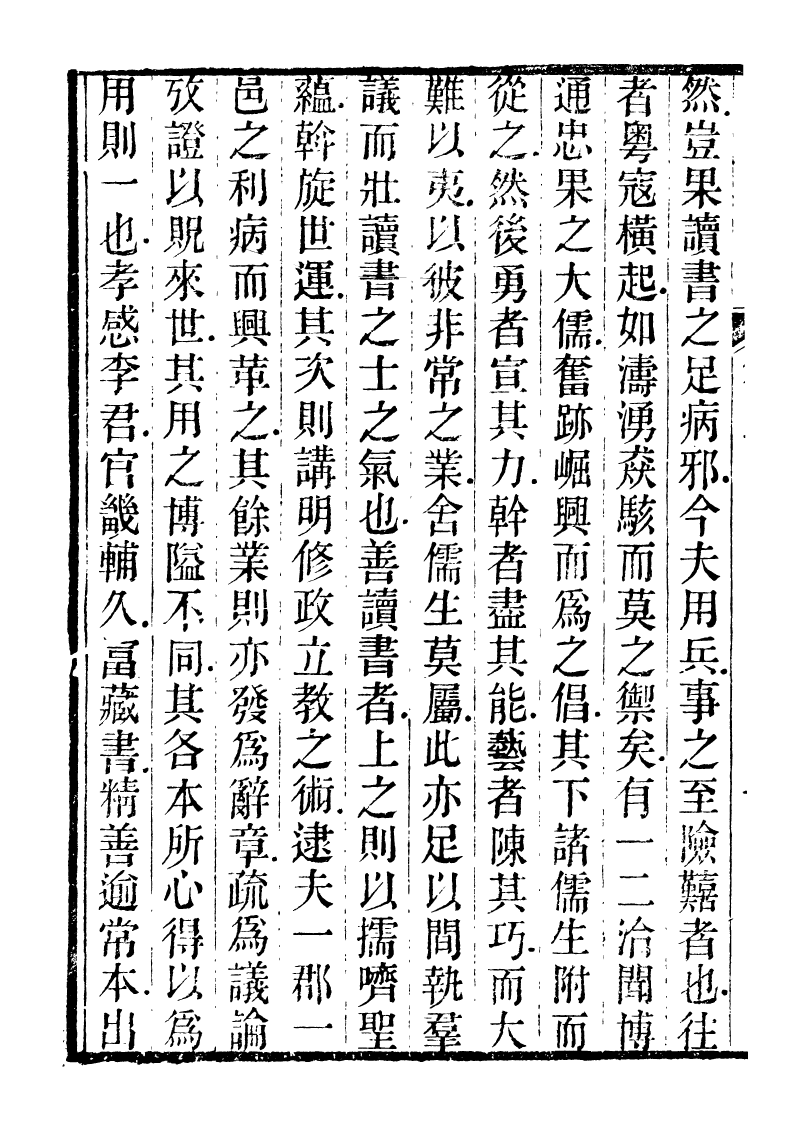 然豈果讀書之足病邪今夫用兵事之至險囏者也往
者粵寇橫起如濤湧猋駭而莫之禦矣有一二洽聞博
通忠果之大儒奮跡崛興而爲之倡其下諸儒生附而
從之然後勇者宣其力幹者盡其能藝者陳其巧而大
難以夷以彼非常之業舍儒生莫屬此亦足以間執羣
議而壯讀書之士之氣也善讀書者上之則以擩嚌聖
蘊斡旋世運其次則講明修政立教之術逮夫一郡一
邑之利病而興革之其餘業則亦發爲辭章疏爲議論
攷證以貺來世其用之博隘不同其各本所心得以爲
用則一也孝感李君官畿輔久富藏書精善逾常本出